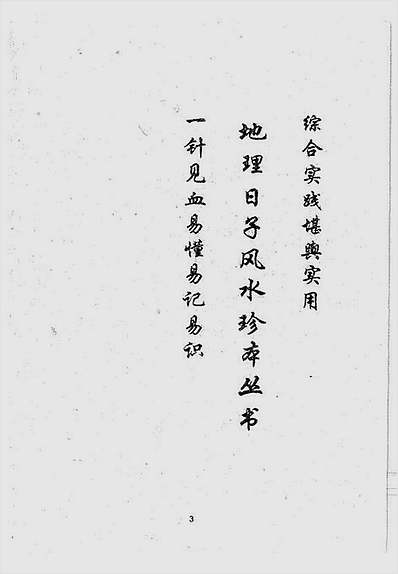 综合实践堪舆实用
地理日子风水珍本丛书
一针见血易懂易记易识
3